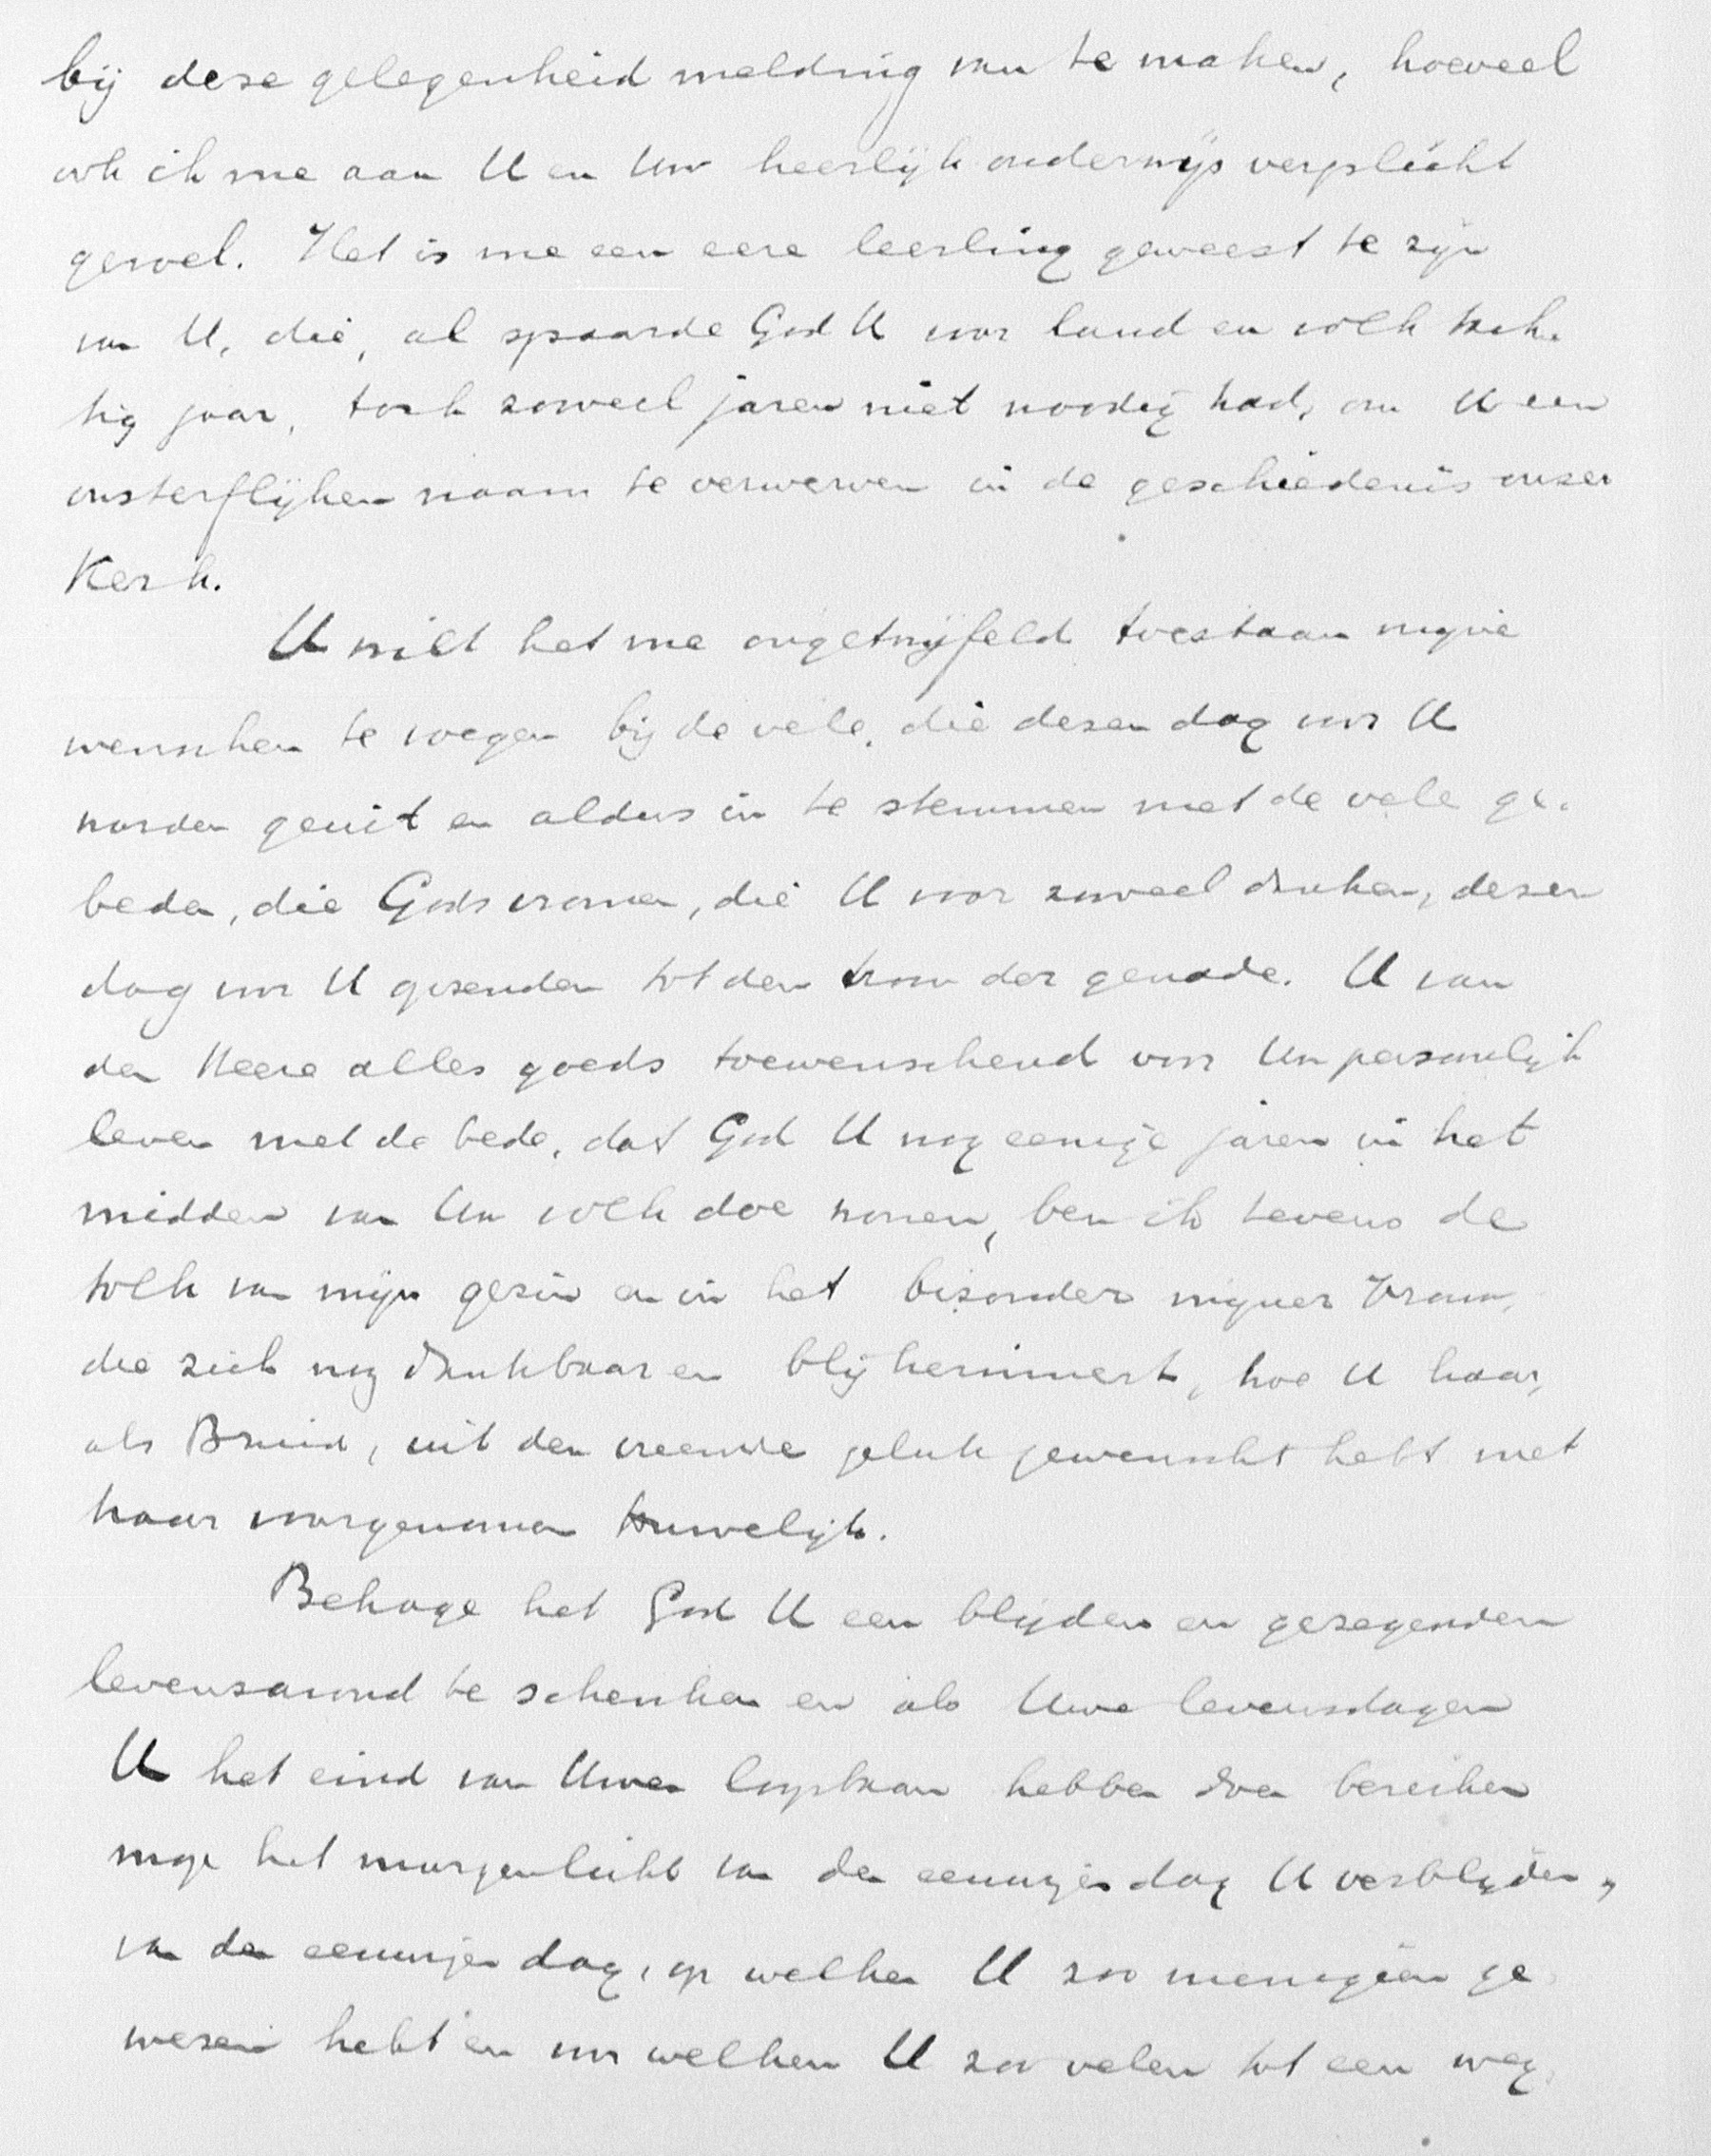 bij deze gelegenheid melding van te maken, hoeveel
ook ik me aan U en Uw heerlijk onderwijs verplicht
gevoel. Het is me een eere leerling geweest te zijn
van U, die, al spaarde God U voor land en volk tach-
tig jaar, toch zooveel jaren niet noodig had, om U een
onsterflijken naam te verwerven in de geschiedenis onzer
Kerk.
U wilt het me ongetwijfeld toestaan mijne
wenschen te voegen bij de vele, die dezen dag voor U
worden geuit en aldus in te stemmen met de vele ge-
beden, die Gods vromen, die U voor zooveel danken, dezen
dag voor U opzenden tot den troon der genade. U van
den Heere alles goeds toewenschend voor Uw persoonlijk
leven met de bede, dat God U nog eenige jaren in het
midden van Uw volk doe wonen, ben ik tevens de
tolk van mijn gezin en in het bizonder mijner Vrouw,
die zich nog dankbaar en blij herinnert, hoe U haar,
als Bruid, uit den vreemde geluk gewenscht hebt met
haar voorgenomen huwelijk.
Behage het God U een blijden en gezegenden
levensavond te schenken en als Uwe levensdagen
U het eind van Uwen loopbaan hebben doen bereiken
moge het morgenlicht van den eeuwigen dag U verblijden,
van den eeuwigen dag, op welken U zoo menigeen ge-
wezen hebt en voor welken U zoo velen tot een weg-